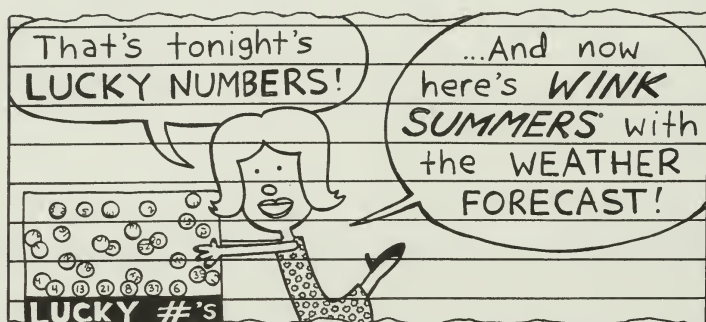 That's tonight's
LUCKY NUMBERS!
...And now
here's WINK
SUMMERS with
the WEATHER
FORECAST!
4 13 21 8 37 6
LUCKY #'s